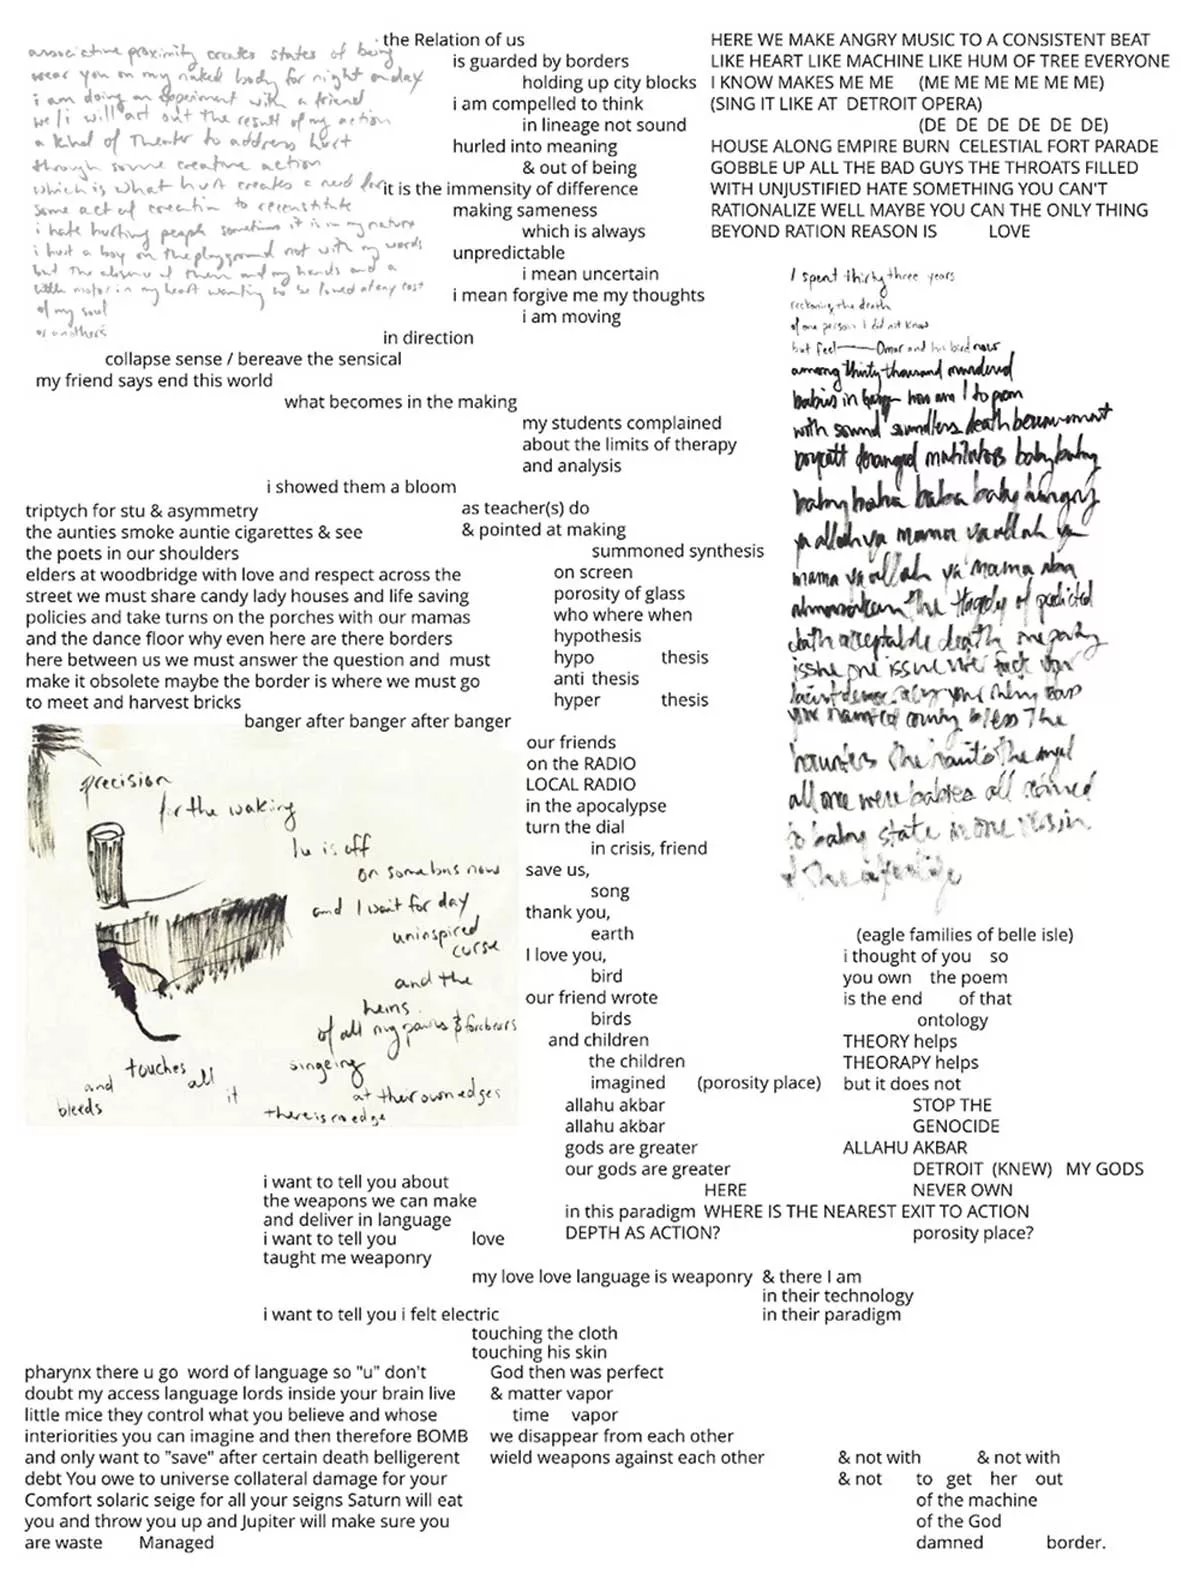 associative proximity creates states of being
wear you on my naked body for night or day
i am doing an experiment with a friend
we/i will act out the result of my action
a kind of theater to address hurt
through some creative action
which is what hurt creates a need for
some act of creation to reconstitute
i hate hurting people sometimes it is in my nature
i hurt a boy on the playground not with my words
but the absence of them and my hands and a
little motor in my heart wanting to be loved at any cost
of my soul
or anothers
the Relation of us
is guarded by borders
holding up city blocks
i am compelled to think
in lineage not sound
hurled into meaning
& out of being
it is the immensity of difference
making sameness
which is always
unpredictable
i mean uncertain
i mean forgive me my thoughts
i am moving
in direction
collapse sense / bereave the sensical
my friend says end this world
what becomes in the making
my students complained
about the limits of therapy
and analysis
i showed them a bloom
as teacher(s) do
& pointed at making
summoned synthesis
on screen
porosity of glass
who where when
hypothesis
hypo thesis
anti thesis
hyper thesis
HERE WE MAKE ANGRY MUSIC TO A CONSISTENT BEAT
LIKE HEART LIKE MACHINE LIKE HUM OF TREE EVERYONE
I KNOW MAKES ME ME (ME ME ME ME ME ME)
(SING IT LIKE AT DETROIT OPERA)
(DE DE DE DE DE DE)
HOUSE ALONG EMPIRE BURN CELESTIAL FORT PARADE
GOBBLE UP ALL THE BAD GUYS THE THROATS FILLED
WITH UNJUSTIFIED HATE SOMETHING YOU CAN'T
RATIONALIZE WELL MAYBE YOU CAN THE ONLY THING
BEYOND RATION REASON IS LOVE
I spent thirty three years
reckoning the death
of one person I did not know
but feel — Omar and his bird now
among thirty thousand murdered
babies in how am I to poem
with sound soundless death bereavement
boycott deranged mutilators baby baby
baby baba baba baby hungry
ya allah ya mama ya allah ya
mama ya allah ya mama
the tragedy of predicted
death acceptable death one party
issue one issue vote fuck your
your
you county bless the
haunters the haunts the angel
all one were babies all
to baby state in one
of the
triptych for stu & asymmetry
the aunties smoke auntie cigarettes & see
the poets in our shoulders
elders at woodbridge with love and respect across the
street we must share candy lady houses and life saving
policies and take turns on the porches with our mamas
and the dance floor why even here are there borders
here between us we must answer the question and must
make it obsolete maybe the border is where we must go
to meet and harvest bricks
banger after banger after banger
precision
for the waking
lu is off
on some bus now
and I wait for day
uninspired
curse
and the
heirs
of all my pawns & forebears
singeing
at their own edges
there is no edge
touches
and all
bleeds it
our friends
on the RADIO
LOCAL RADIO
in the apocalypse
turn the dial
in crisis, friend
save us,
song
thank you,
earth
I love you,
bird
our friend wrote
birds
and children
the children
imagined (porosity place)
allahu akbar
allahu akbar
gods are greater
our gods are greater
HERE
in this paradigm WHERE IS THE NEAREST EXIT TO ACTION
DEPTH AS ACTION? porosity place?
(eagle families of belle isle)
i thought of you so
you own the poem
is the end of that
ontology
THEORY helps
THEORAPY helps
but it does not
STOP THE
GENOCIDE
ALLAHU AKBAR
DETROIT (KNEW) MY GODS
NEVER OWN
i want to tell you about
the weapons we can make
and deliver in language
i want to tell you love
taught me weaponry
my love love language is weaponry & there I am
in their technology
i want to tell you i felt electric in their paradigm
touching the cloth
touching his skin
pharynx there u go word of language so "u" don't
doubt my access language lords inside your brain live
little mice they control what you believe and whose
interiorities you can imagine and then therefore BOMB
and only want to "save" after certain death belligerent
debt You owe to universe collateral damage for your
Comfort solaric seige for all your seigns Saturn will eat
you and throw you up and Jupiter will make sure you
are waste Managed
God then was perfect
& matter vapor
time vapor
we disappear from each other
wield weapons against each other
& not with & not with
& not to get her out
of the machine
of the God
damned border.